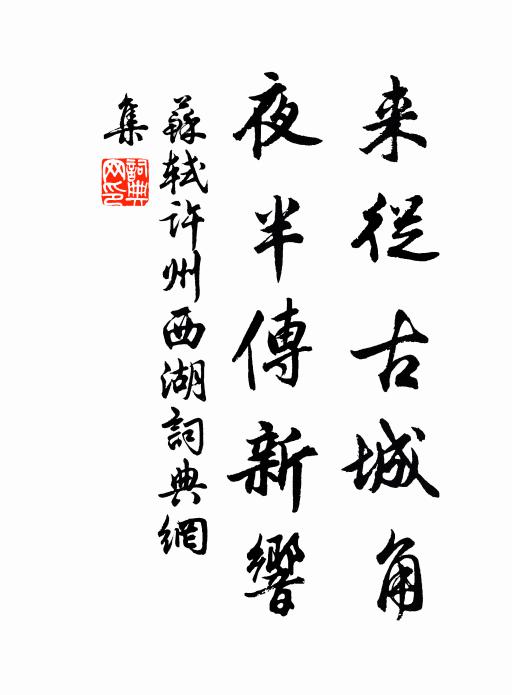 来從古城角
夜半傳新響
蘇軾許州西湖詞典網
集
詞典
网印